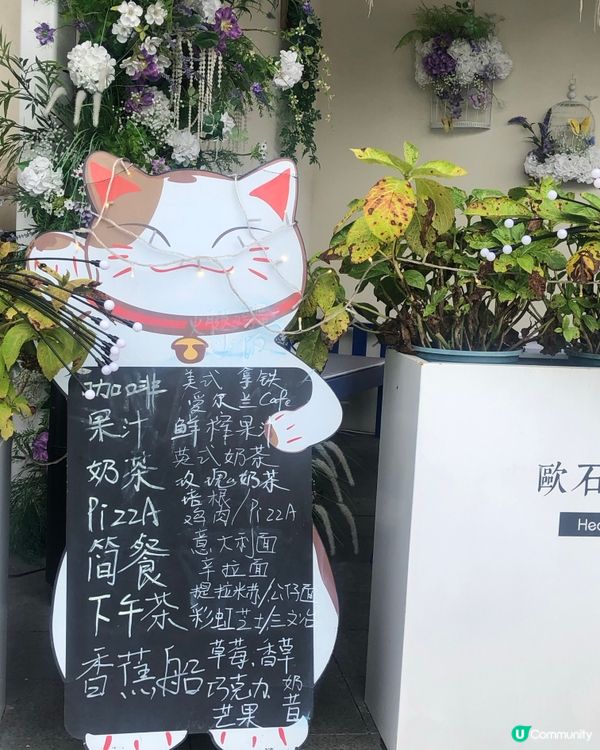 咖啡 美式 拿铁
爱尔兰 Cafe
果汁 鲜榨果汁
奶茶 英式奶茶
玫瑰奶茶
PizzA 培根
鸡肉/PizzA
简餐 意大利面
辛拉面
下午茶 提拉米苏/公仔面
彩虹芝士/三文治
香蕉船 草莓.香草
巧克力 奶
芒果 昔
歐石
Hea
U Community